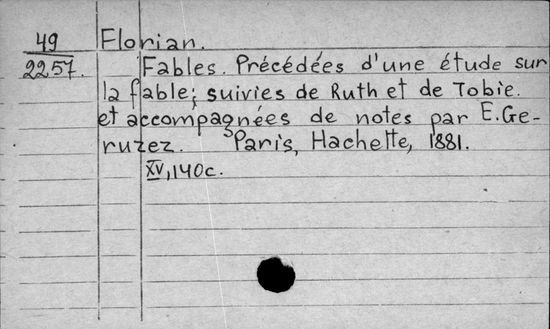 49 Florian.
2257. Fables. Précédées d'une étude sur
la fable; suivies de Ruth et de Tobie.
et accompagnées de notes par E. Ge-
ruzez. Paris, Hachette, 1881.
XV, 140c.